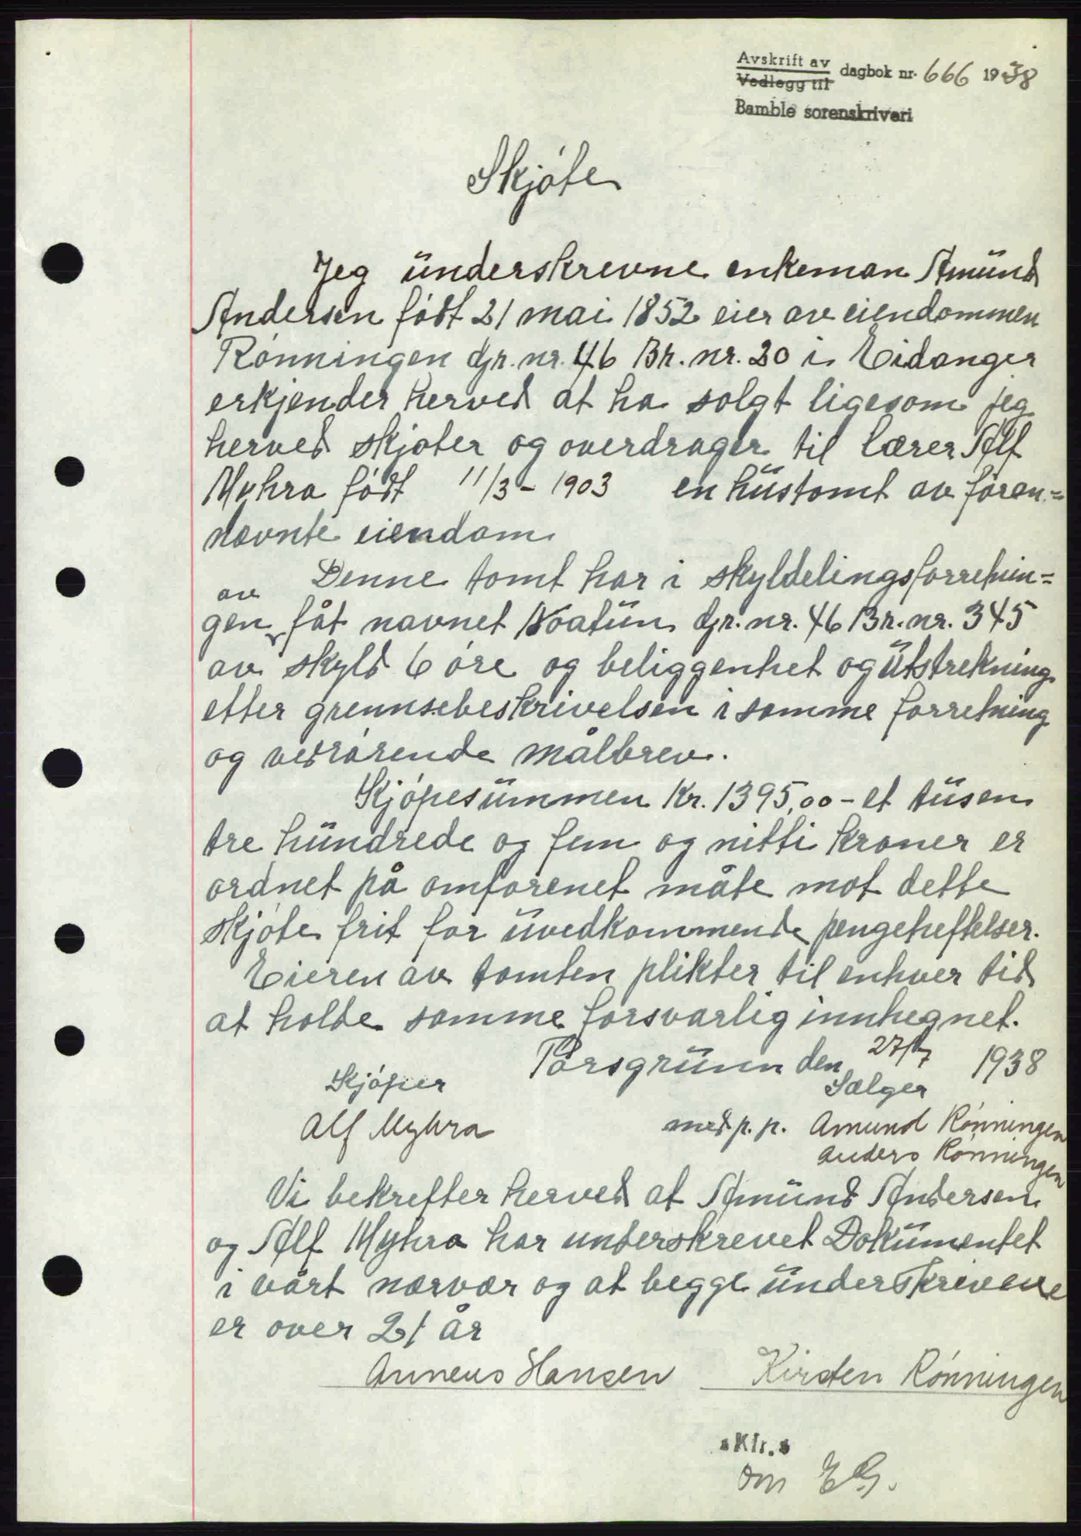 Avskrift av
Vedlegg til
dagbok nr. 666 1938
Bamble sorenskriveri
Skjøte
Jeg underskrevne enkeman Amund
Andersen født 21 mai 1852 eier av eiendommen
Rønningen Gr. nr. 46 Br. nr. 20 i Eidanger
erkjender herved at ha solgt ligesom jeg
herved skjøter og overdrager til lærer Alf
Myhra født 11/3 - 1903 en hustomt av foran=
nævnte eiendom
Denne tomt har i skyldelingsforretnin=
av
gen fåt navnet Noatun Gr. nr. 46 Br. nr. 345
av skyld 6 øre og beliggenhet og utstrekning
etter grennsebeskrivelsen i samme forretning
og vedrørende målbrev.
Kjøpesummen Kr. 1395,00 - et tusen
tre hundrede og fem og nitti kroner er
ordnet på omforenet måte mot dette
skjøte frit for uvedkommende pengeheftelser.
Eieren av tomten plikter til enhver tid
at holde samme forsvarlig innhegnet.
Porsgrunn den 27/7 1938
Kjøper Sælger
Alf Myhra med p. p. Amund Rønningen
Anders Rønningen
Vi bekrefter herved at Amund Andersen
og Alf Myhra har underskrevet Dokumentet
i vårt nærvær og at begge underskrivere
er over 21 år
Anneus Hansen Kirsten Rønningen
Klr.
om EG.